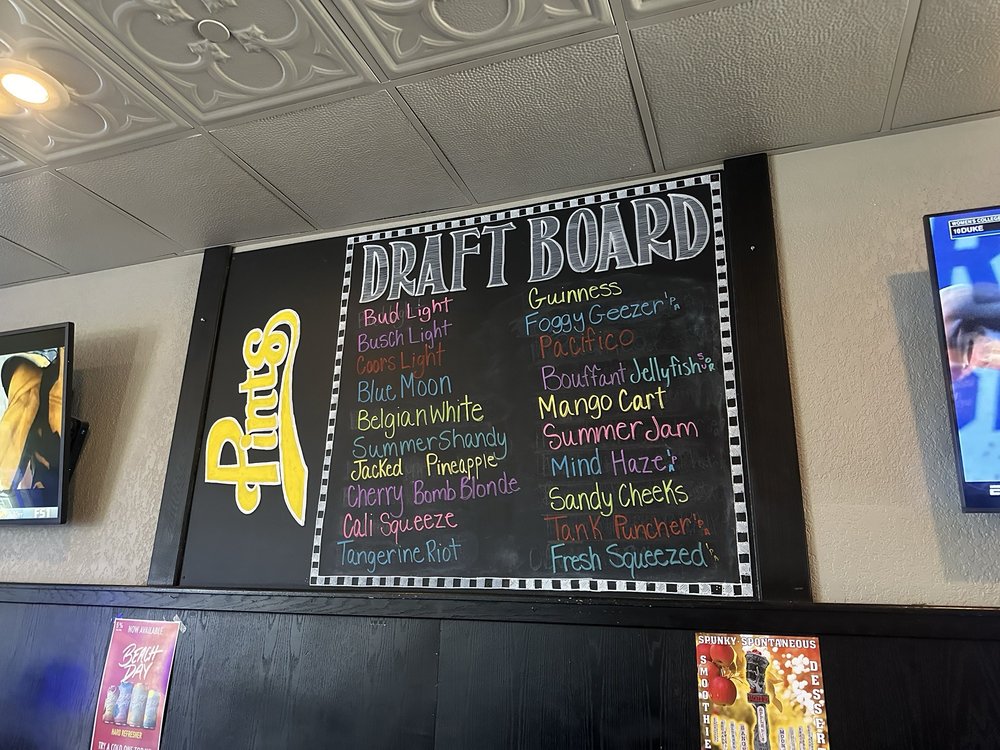 Pints
DRAFT BOARD
Bud Light
Busch Light
Coors Light
Blue Moon
Belgian White
Summer Shandy
Jacked Pineapple
Cherry Bomb Blonde
Cali Squeeze
Tangerine Riot
Guinness
Foggy Geezer IPA
Pacifico
Bouffant Jellyfish SOUR
Mango Cart
Summer Jam
Mind Haze IPA
Sandy Cheeks
Tank Puncher IPA
Fresh Squeezed IPA
FS1
WOMEN'S COLLEGE
10 DUKE
5%
NOW AVAILABLE
BEACH
DAY
HARD REFRESHER
TRY A COLD ONE TODAY
SPUNKY-SPONTANEOUS
SMOOTHIE
DESSER